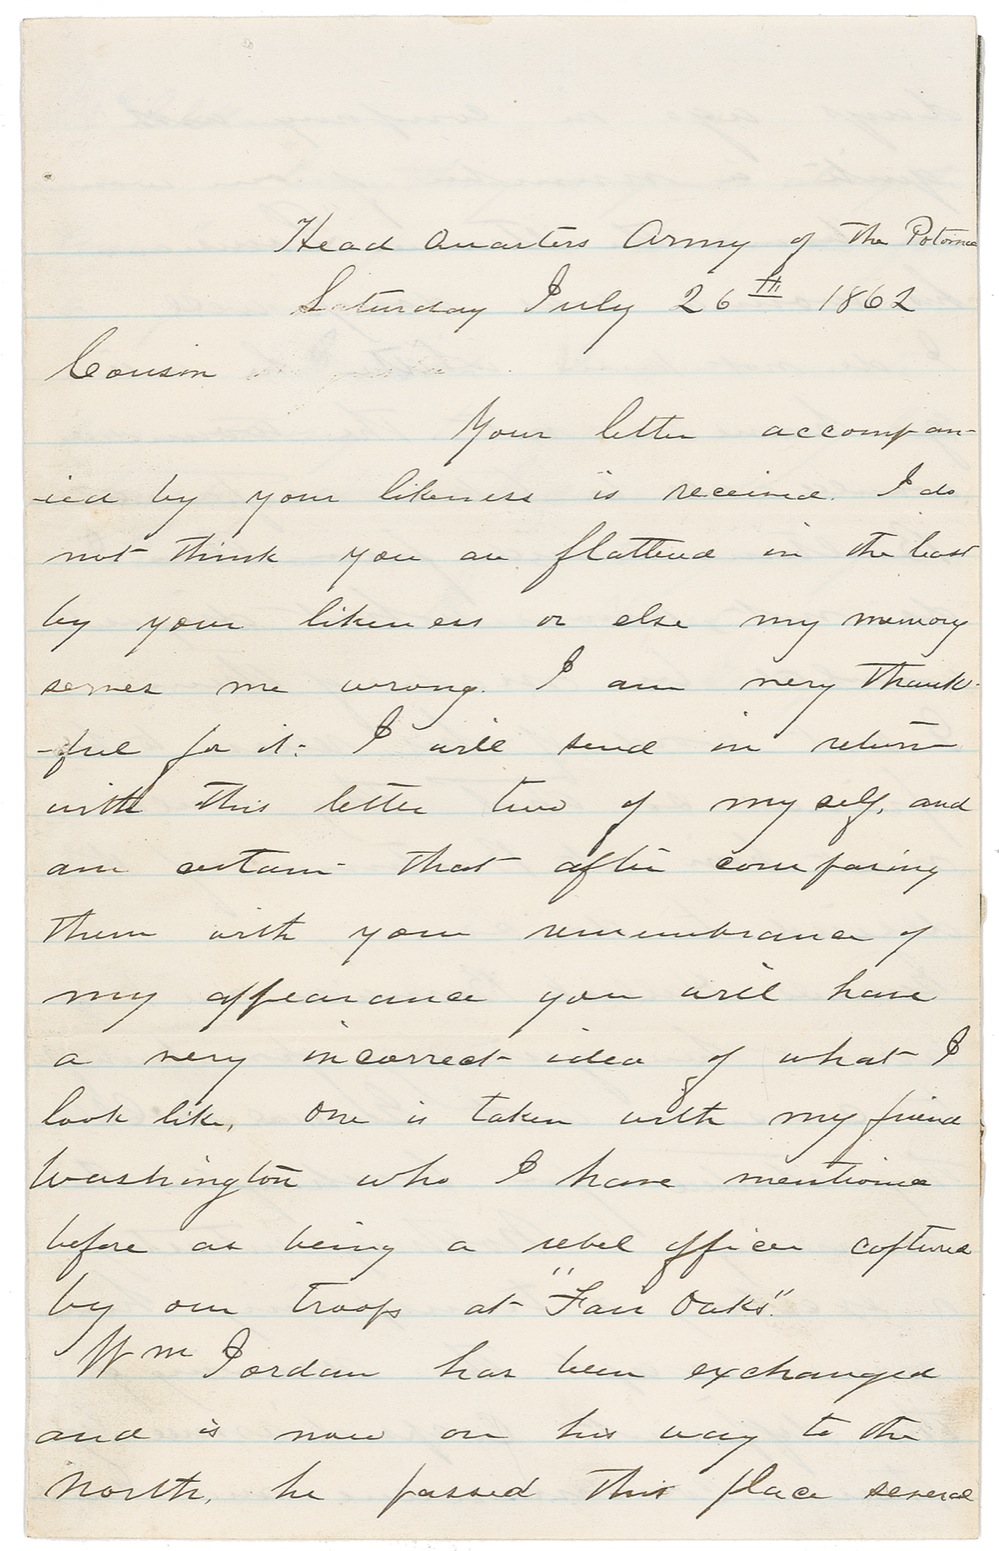 Head Quarters Army of the Potomac
Saturday July 26th 1862
Cousin
Your letter accompan-
-ied by your likeness is received. I do
not think you are flattered in the least
by your likeness or else my memory
serves me wrong. I am very thank-
-ful for it. I will send in return
with this letter two of my self, and
am certain that after comparing
them with your remembrance of
my appearance you will have
a very incorrect idea of what I
look like, One is taken with my friend
Washington who I have mentioned
before as being a rebel officer captured
by our troops at "Fair Oaks".
Wm Jordan has been exchanged
and is now on his way to the
North, he passed this place several